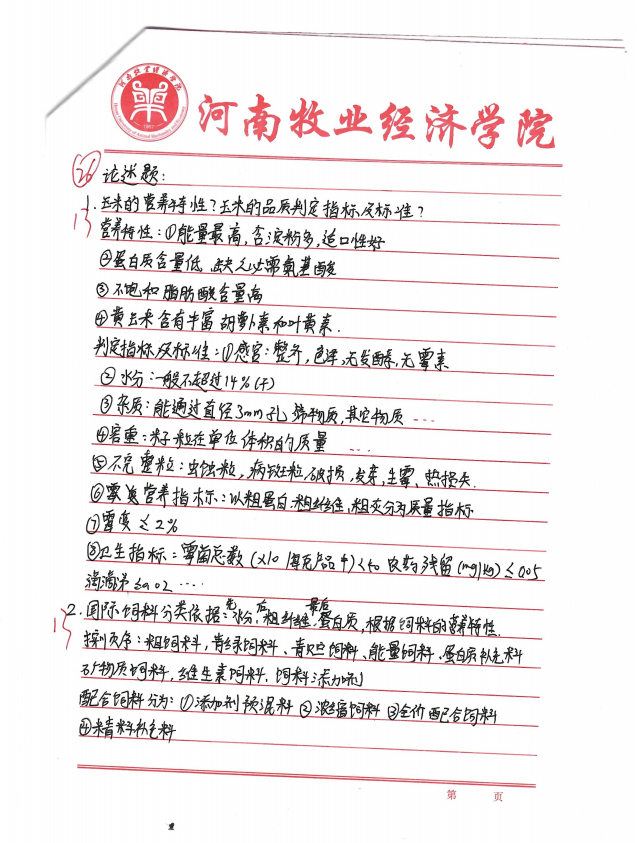 河南牧业经济学院
26
论述题:
1. 玉米的营养特性?玉米的品质判定指标及标准?
13
营养特性:①能量最高,含淀粉多,适口性好
②蛋白质含量低,缺乏必需氨基酸
③不饱和脂肪酸含量高
④黄玉米含有丰富胡萝卜素和叶黄素.
判定指标及标准:①感官:整齐,色泽,无发酵,无霉素
②水分:一般不超过14%(千)
③杂质:能通过直径3mm孔筛物质,其它物质 ....
④容重:籽粒在单位体积的质量 ....
⑤不完整粒:虫蚀粒,病斑粒,破损,发芽,生霉、热损失.
⑥营养指标:以粗蛋白.粗纤维,粗灰分为质量指标
⑦霉变≤2%
⑧卫生指标:霉菌总数(×10 每克产品中)<40 农药残留(mg/kg)≤0.05
滴滴涕≤0.02 ....
先 后 最后
2. 国际饲料分类依据:水分,粗纤维.蛋白质,根据饲料的营养特性.
13
排列顺序:粗饲料,青绿饲料、青贮饲料、能量饲料.蛋白质补充料
矿物质饲料,维生素饲料.饲料添加剂
配合饲料分为:①添加剂预混料②浓缩饲料③全价配合饲料
④精料补充料
第 页